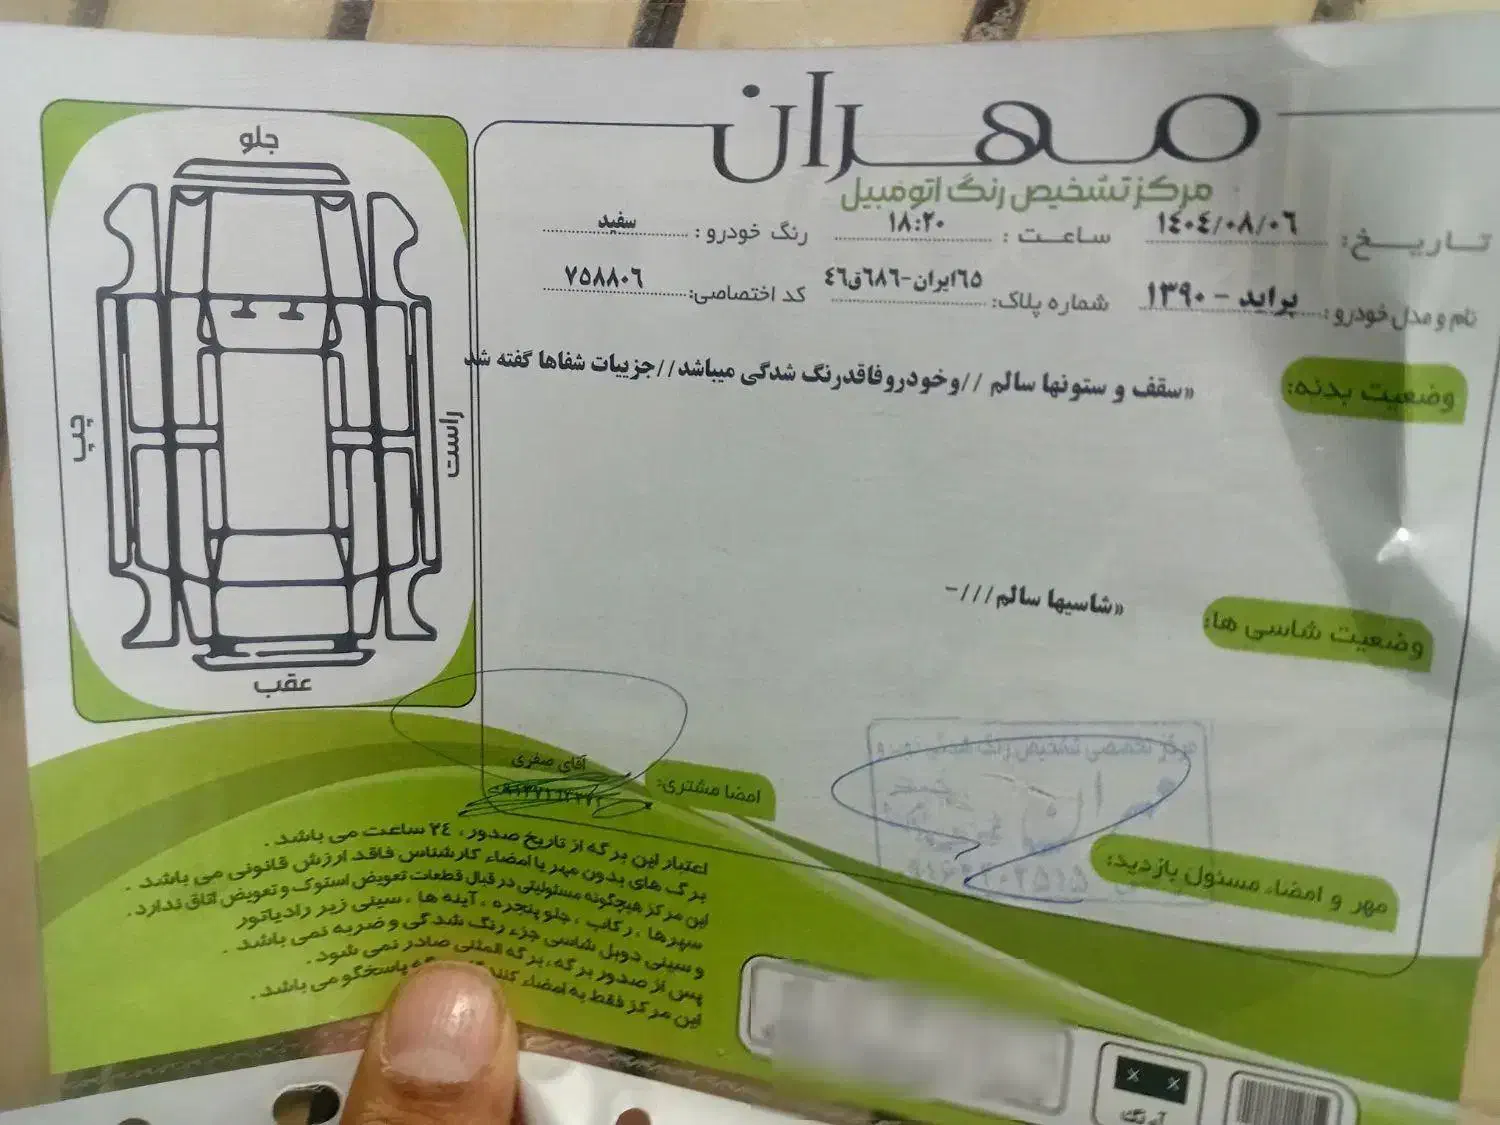 مهران
مرکز تشخیص رنگ اتومبیل
تاریخ: ۱۴۰۴/۰۸/۰۶ ساعت: ۱۸:۲۰ رنگ خودرو: سفید
نام و مدل خودرو: پراید – ۱۳۹۰ شماره پلاک: ۶۵ایران-۶۸۶ق۴۶ کد اختصاصی: ۷۵۸۸۰۶
وضعیت بدنه: «سقف و ستونها سالم //وخودروفاقدرنگ شدگی میباشد//جزییات شفاها گفته شد
وضعیت شاسی ها: «شاسیها سالم///-
جلو
چپ
راست
عقب
مرکز تخصصی تشخیص رنگ
مهر و امضاء مسئول بازدید:
امضا مشتری: آقای صفری
اعتبار این برگه از تاریخ صدور، ۲۴ ساعت می باشد.
برگ های بدون مهر یا امضاء کارشناس فاقد ارزش قانونی می باشد.
این مرکز هیچگونه مسئولیتی در قبال قطعات تعویض استوک و تعویض اتاق ندارد.
سپرها، رکاب، جلو پنجره، آینه ها، سینی زیر رادیاتور
و سینی دوبل شاسی جزء رنگ شدگی و ضربه نمی باشد.
پس از صدور برگه، برگه المثنی صادر نمی شود.
این مرکز فقط به امضاء پاسخگو می باشد.